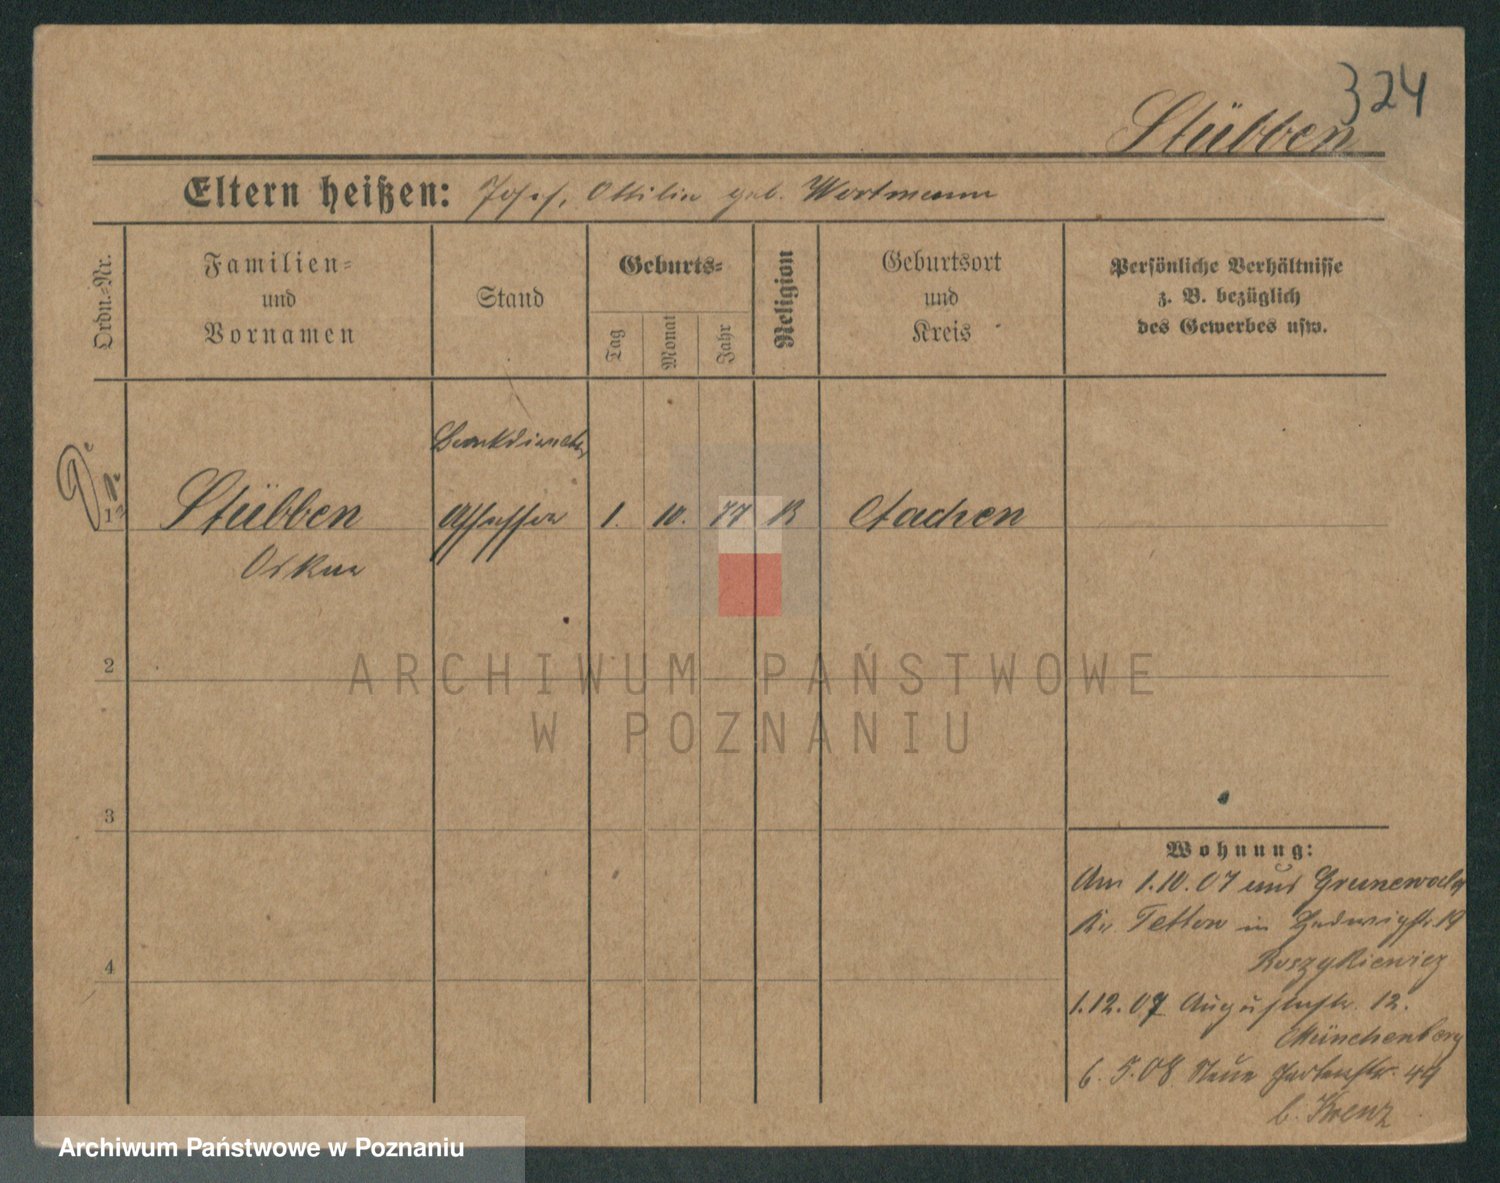 324
Stübben
Eltern heißen: Josef, Ottilie geb. Wortmann
Ordn.-Nr.
Familien-
und
Vornamen
Stand
Geburts-
Tag
Monat
Jahr
Religion
Geburtsort
und
Kreis
Persönliche Verhältnisse
z. B. bezüglich
des Gewerbes usw.
Bankdirektor
1 Stübben Assessor 1. 10. 77 K Aachen
Oskar
2
ARCHIWUM PAŃSTWOWE
W POZNANIU
3
Wohnung:
Am 1.10.07 aus Grunewald
Kr. Teltow in Hedwigstr. 19
Ruszykiewicz
4
1.12.07 Augustastr. 12.
Münchenberg
6. 5.08 Neue Gartenstr. 44
b. Krenz
Archiwum Państwowe w Poznaniu